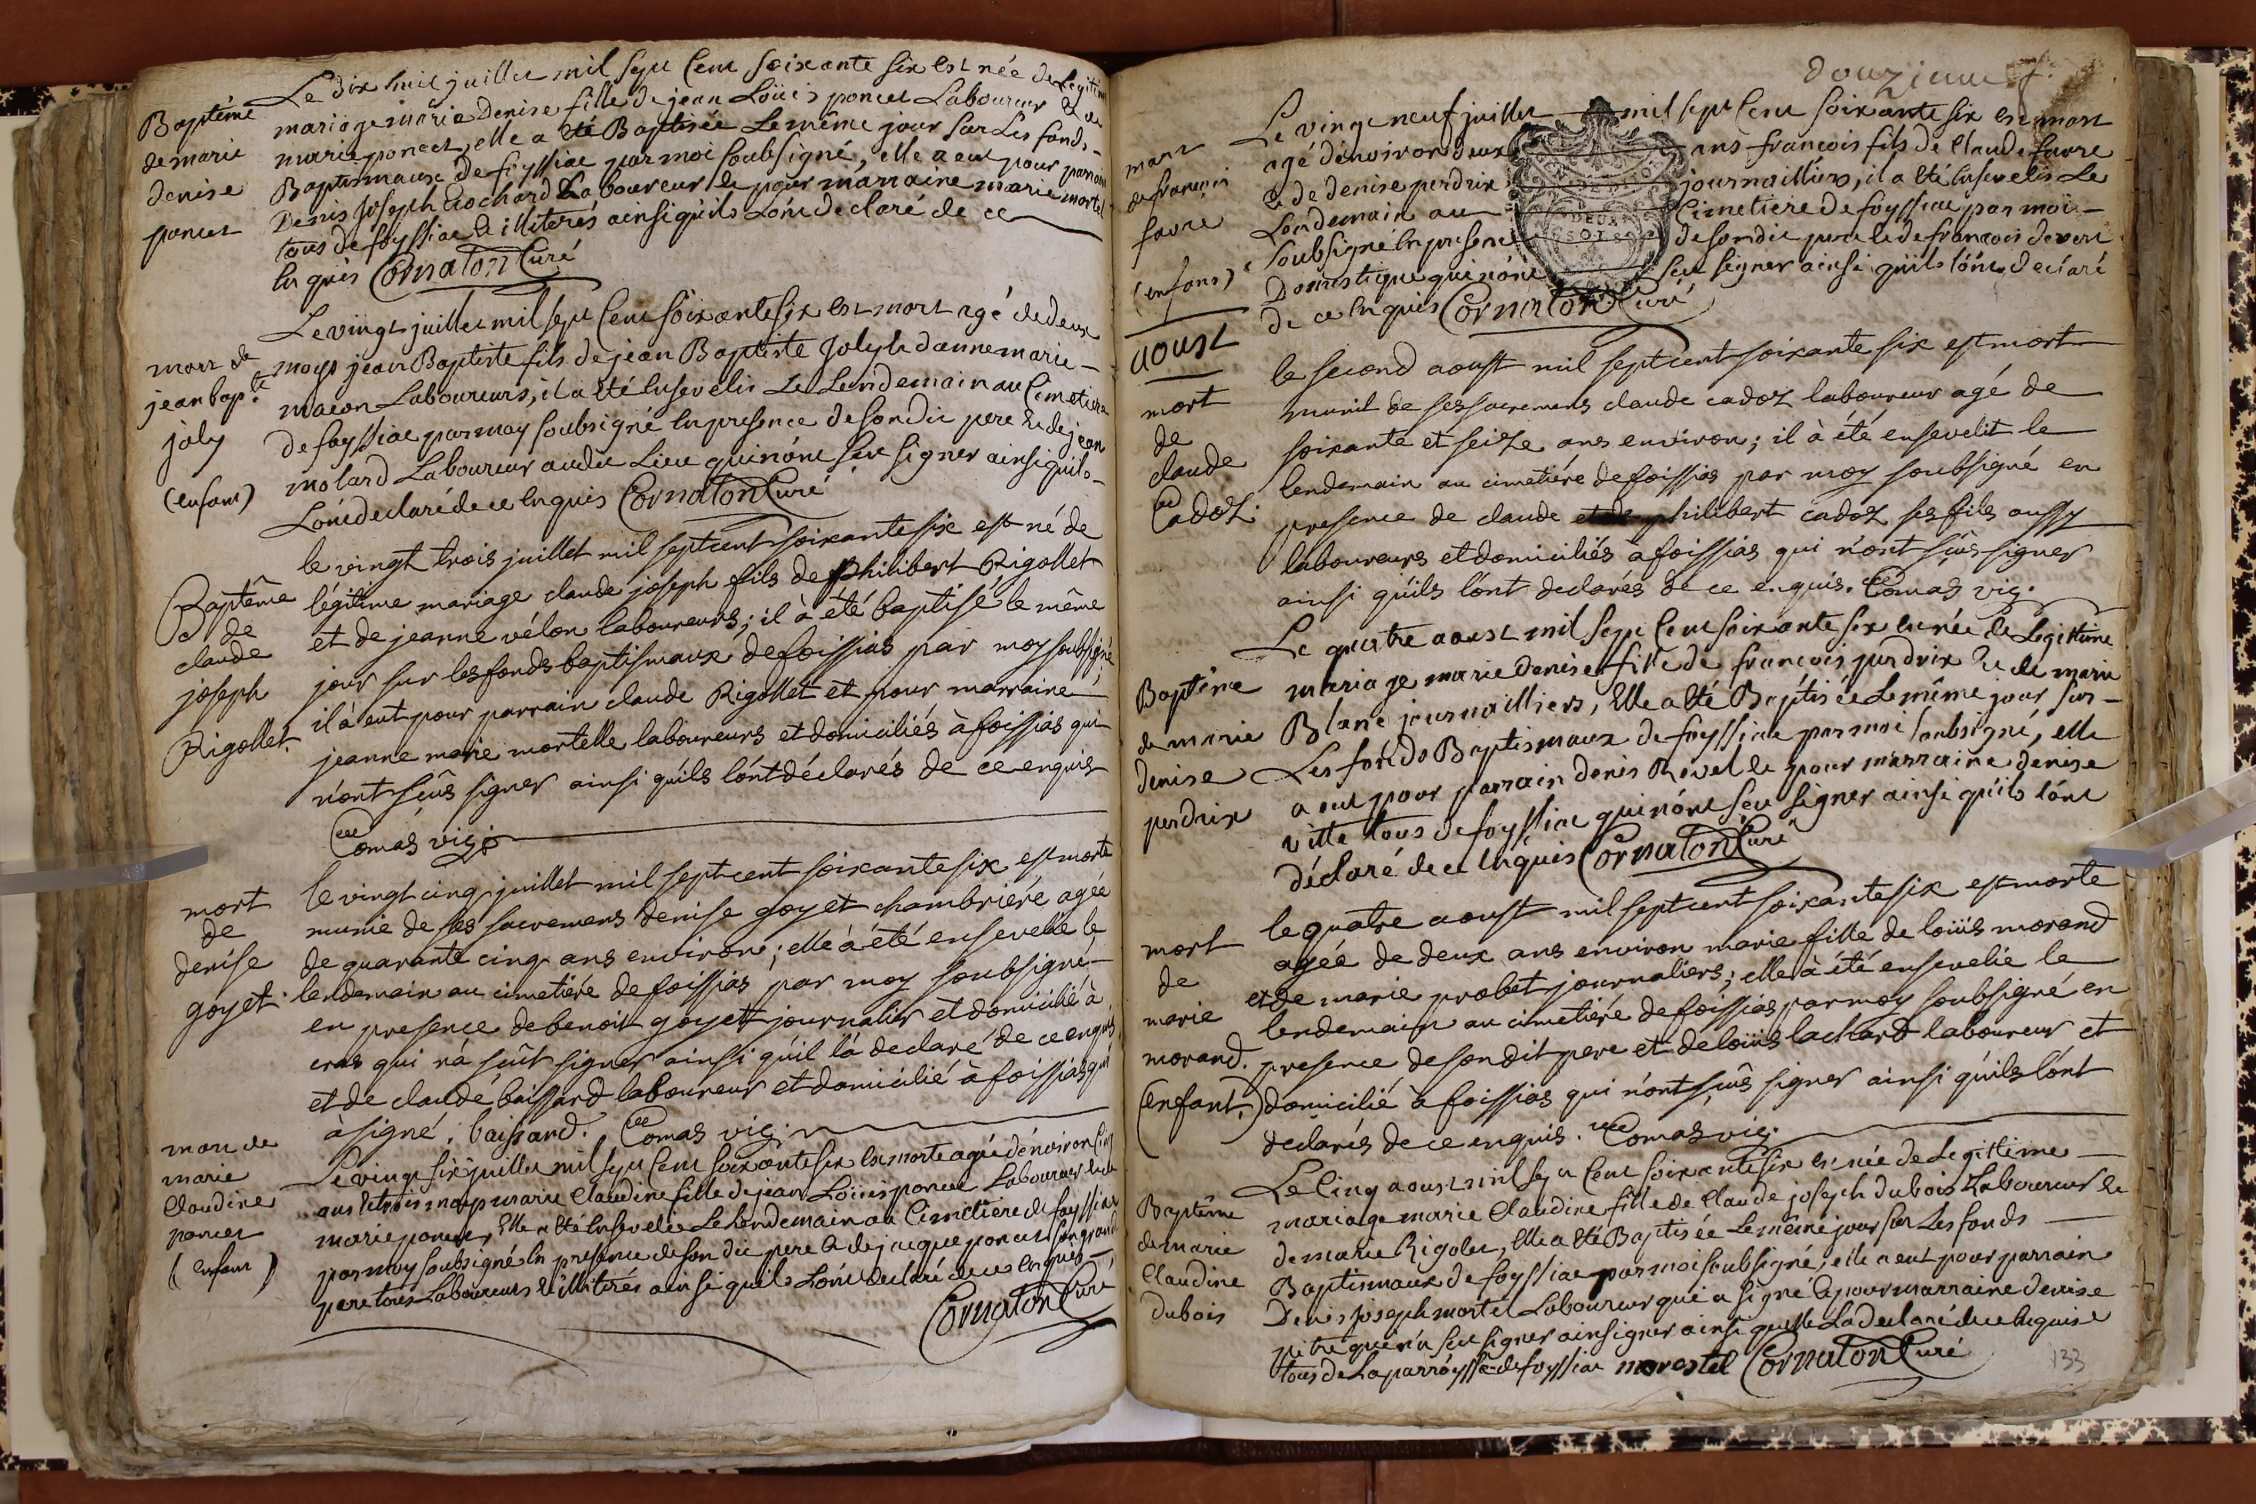 Le dix huit juillet mil sept Cent soixante six est née de Legitime
Baptême
de marie
denise
poncet
mariage marie denise fille de jean Loüis poncet Laboureur & de
marie poncet, elle a été Baptisée Le même jour sur Les fonds
Baptismaux de foyssiac par moi soubsigné, elle a eut pour parrain
Denis joseph Laboureur & pour marraine marie mortel
tous de foyssiac & illiterés ainsi qu'ils L'ont declaré de ce
Enquis Cornaton Curé
Le vingt juillet mil sept Cent soixante six est mort agé de deux
mort de
jean bap.te
joly
(enfant)
moys jean Baptiste fils de jean Baptiste Joly & d'anne marie
macon Laboureurs, il a été Ensevelis Le Lendemain au Cimetiere
de foyssiac par moy soubsigné En presence de son dit pere & de jean
molard Laboureur audit Lieu qui n'ont sçu signer ainsi qu'ils
L'ont declaré de ce Enquis Cornaton Curé
le vingt trois juillet mil sept cent soixante six est né de
Baptême
de
claude
joseph
Rigollet.
légitime mariage claude joseph fils de philibert Rigollet
et de jeanne vélon laboureurs; il à été baptisé le même
jour sur les fonds baptismaux de foissias par moy soubsigné
il à eut pour parrain claude Rigollet et pour marraine
jeanne marie mortelle laboureurs et domiciliés à foissias qui
n'ont sçûs signer ainsi qu'ils l'ont déclarés de ce enquis
Comas vic.
le vingt cinq juillet mil sept cent soixante six est morte
mort
de
denise
goyet.
munie de ses sacremens denise goyet chambriére agée
de quarante cinq ans environ; elle à été ensevelie le
lendemain au cimetiére de foissias par moy soubsigné
en presence de benoit goyet journalier et domicilié à
cras qui n'à sçût signer ainsi qu'il l'a declaré de ce enquis
et de claude baissard laboureur et domicilié à foissias qui
à signé. baissard. Comas vic.
Le vingt six juillet mil sept Cent soixante six est morte agée d'environ Cinq
mort de
marie
Claudine
poncet
(enfant)
ans & trois moys marie Claudine fille de jean Loüis poncet Laboureur & de
marie poncet, Elle a été Ensevelie Le Lendemain au Cimetiere de foyssiac
par moy soubsigné En presence de son dit pere & de jacque poncet son grand
pere tous Laboureurs & illiterés ainsi qu'ils L'ont declaré de ce Enquis
Cornaton Curé
douzieme f.
Le vingt neuf juillet mil sept Cent soixante six est mort
mort
de françois
favre
(enfant)
agé d'environ deux ans françois fils de Claude favre
& de denise perdrix journailliers, il a été Ensevelis Le
Lendemain au Cimetiere de foyssiac par moi
soubsigné En presence de son dit pere & de françois devert
Domestique qui n'ont sçu signer ainsi qu'ils l'ont declaré
de ce Enquis Cornaton Curé
aoust
le second aoust mil sept cent soixante six est mort
mort
de
claude
Cadoz.
munit de ses sacremens claude cadoz laboureur agé de
soixante et seize ans environ; il à été ensevelit le
lendemain au cimetiére de foissias par moy soubsigné en
presence de claude et de philibert cadoz ses fils aussy
laboureurs et domiciliés à foissias qui n'ont sçûs signer
ainsi qu'ils l'ont declarés de ce enquis. Comas vic.
Le quatre aoust mil sept Cent soixante six est née de Legittime
Baptême
de marie
denise
perdrix
mariage marie denise fille de françois perdrix & de marie
Blanc journailliers, Elle a été Baptisée Le même jour sur
Les fonds Baptismaux de foyssiac par moi soubsigné, elle
a eut pour parrain denis Revel & pour marraine denise
vitte tous de foyssiac qui n'ont sçu signer ainsi qu'ils l'ont
déclaré de ce Enquis Cornaton Curé
le quatre aoust mil sept cent soixante six est morte
mort
de
marie
morand.
(enfant.)
agée de deux ans environ marie fille de loüis morand
et de marie probet journaliers; elle à été ensevelie le
lendemain au cimetiéré de foissias par moy soubsigné en
presence de son dit pere et de loüis lachard laboureur et
domicilié à foissias qui n'ont sçûs signer ainsi qu'ils l'ont
declarés de ce enquis. Comas vic.
Le Cinq aoust mil sept Cent soixante six est née de Legittime
Baptême
de marie
Claudine
dubois
mariage marie Claudine fille de Claude joseph dubois Laboureur &
de marie Rigolet, elle a été Baptisée Le même jour sur Les fonds
Baptismaux de foyssiac par moi soubsigné, elle a eut pour parrain
Denis joseph mortel Laboureur qui a signé & pour marraine denise
pitre qui n'a sçu signer ainsigner ainsi qu'elle L'a declaré de ce Enquise
tous de La parroysse de foyssiac Cornaton Curé
133